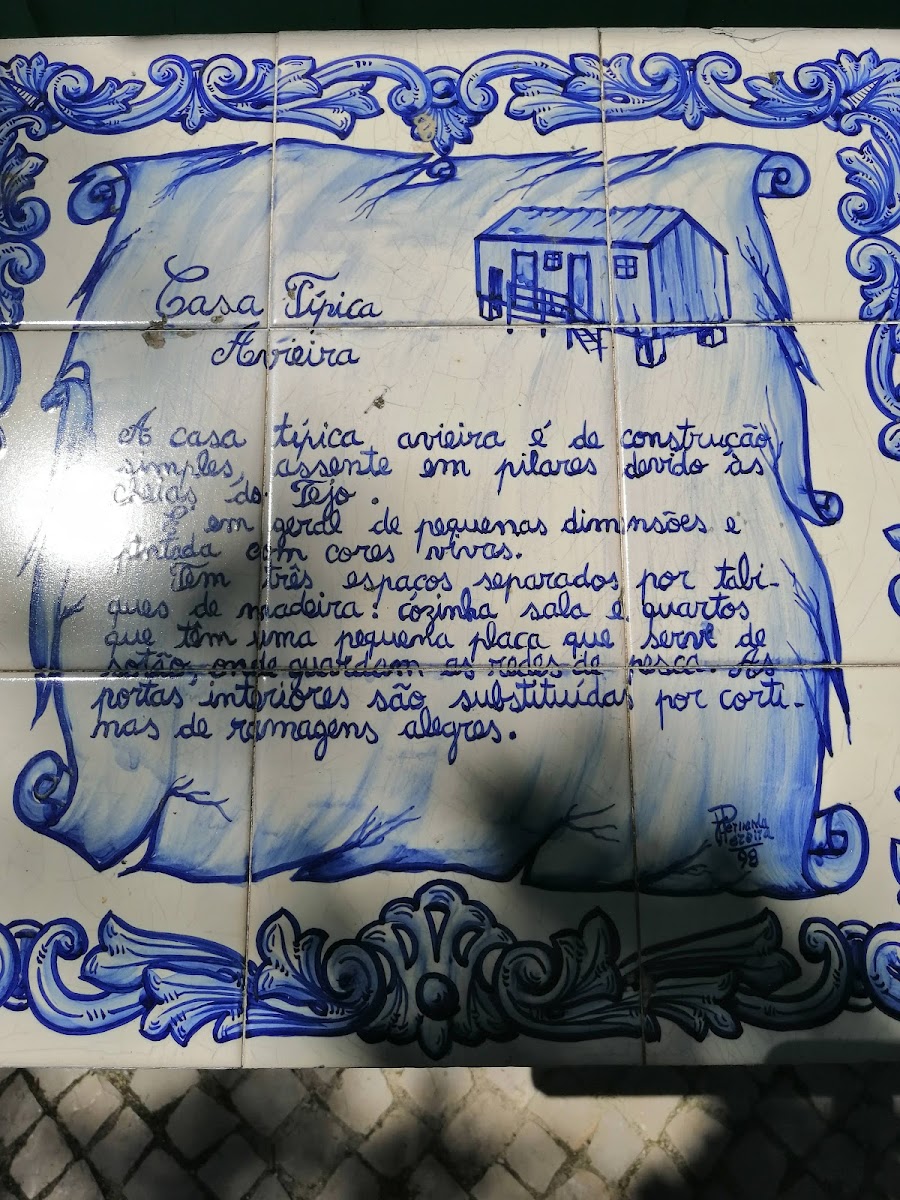 Casa Típica
Avieira
A casa típica avieira é de construção
simples, assente em pilares devido às
cheias do Tejo.
É em geral de pequenas dimensões e
pintada com cores vivas.
Tem três espaços separados por tabi-
ques de madeira: cozinha sala e quartos
que têm uma pequena placa que serve de
sotão, onde guardam as redes de pesca. As
portas interiores são substituídas por corti-
nas de ramagens alegres.
98